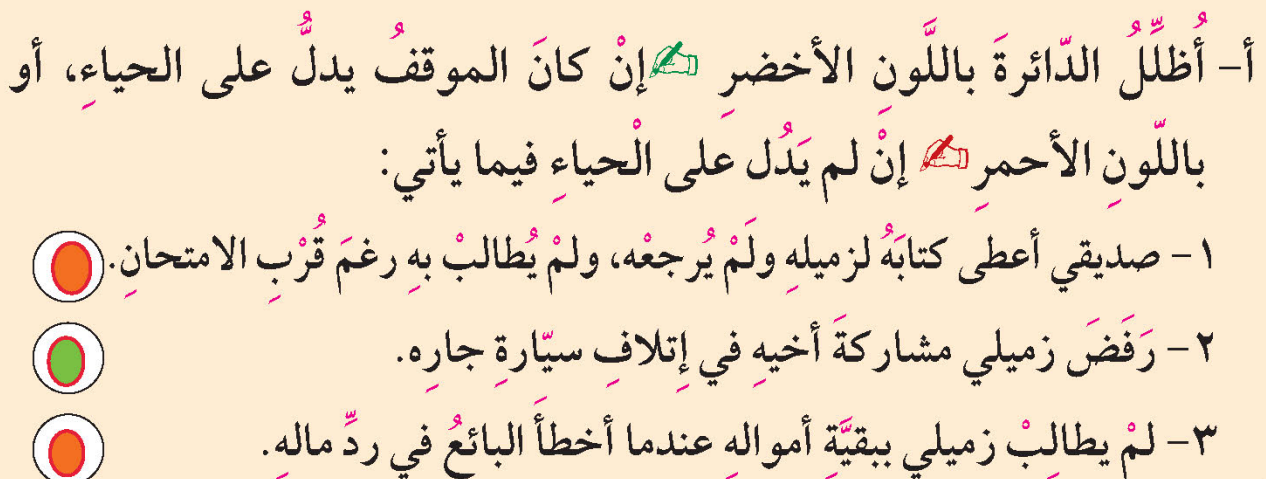 أ- أُظلِّلُ الدّائرةَ باللَّونِ الأخضرِ إنْ كانَ الموقفُ يدلُّ على الحياءِ، أو
باللّونِ الأحمرِ إنْ لم يَدُل على الْحياءِ فيما يأتي:
١ - صديقي أعطى كتابَهُ لزميلهِ ولَمْ يُرجعْه، ولمْ يُطالبْ بهِ رغمَ قُرْبِ الامتحانِ.
٢ - رَفَضَ زميلي مشاركةَ أخيهِ في إتلافِ سيّارةِ جارِه.
٣- لمْ يطالِبْ زميلي ببقيَّةِ أموالهِ عندما أخطأَ البائعُ في ردِّ مالهِ.